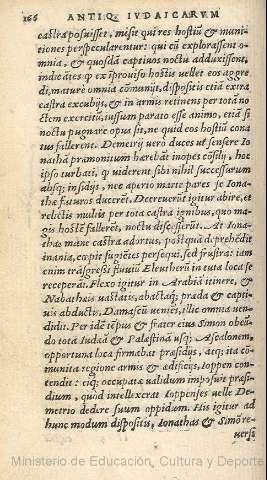 166 ANTIQ. IVDAICARVM
castra posuisset, misit qui res hostiũ & muni
tiones perspecularentur: qui cũ explorassent o-
mnia, & quosdã captiuos noctu adduxissent,
indicãtes q ex ĩprouiso hostis uellet eos aggre
di, mature omnia cõmunit, dispositis etiã extra
castra excubijs, & in armis retinens per totã no
ctem exercitũ, iussum parato esse animo, etiã si
noctu pugnare opus sit, ne quid eos hostiũ cona
tus fallerent. Demetrij uero duces ut sensere Io
nathã præmonitum hærebãt inopes cõsilij, hoc
ipso turbati, q uiderent sibi nihil successurum
absq; insidijs, nec aperto marte pares se Iona-
thæ futuros duceret. Decreuerũt igitur abire, et
relictis multis per tota castra ignibus, quo ma-
gis hostẽ fallerẽt, noctu discesserũt. At Iona-
thas mane castra adortus, postquã deprehẽdit
inania, cœpit fugiẽtes persequi, sed frustra: iam
enim trãsgressi fluuiũ Eleutherũ in tuta loca se
receperãt. Flexo igitur in Arabiã itinere, &
Nabathæis uastatis, abactaq; præda & capti-
uis abductis, Damascũ ueniẽs, illic omnia uen-
didit. Per idẽ tẽpus & frater eius Simon obeũ-
do totã Iudæã & Palæstinã usq; Ascalonem,
opportuna loca firmabat præsidijs, atq; ita cõ-
munita regione armis & ædificijs, Ioppen con-
tendit: eiq; occupatæ ualidum imposuit præsi-
dium, quod intellexerat Ioppenses uelle De-
metrio dedere suum oppidum. His igitur ad
hunc modum dispositis, Ionathas & Simõ re-
uersi
Ministerio de Educación, Cultura y Deporte